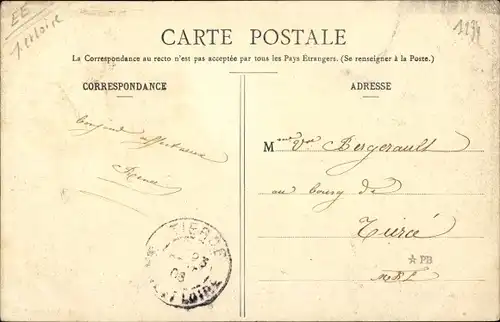 EE
CARTE POSTALE
La Correspondance au recto n'est pas acceptée par tous les Pays Etrangers. (Se renseigner à la Poste.)
CORRESPONDANCE
ADRESSE
Bonjour affectueux
René
Mme Vve Bergerault
au bourg de
Tiercé
M&L
TIERCÉ
08
ET LOIRE
☆PB